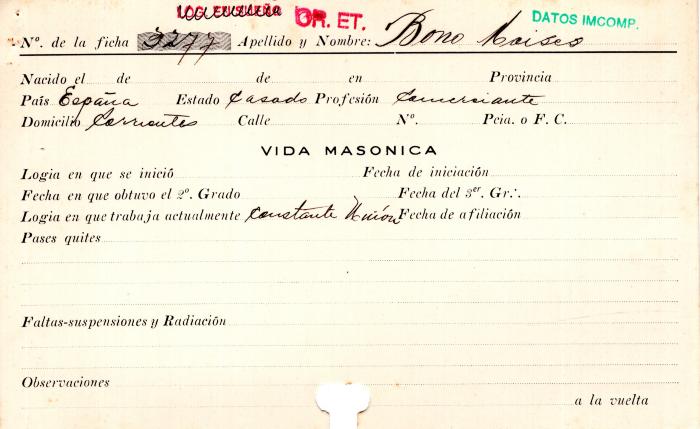 OR. ET.
DATOS IMCOMP.
Nº. de la ficha 3277 Apellido y Nombre: Bono Moises
Nacido el de de en Provincia
País España Estado Casado Profesión Comerciante
Domicilio Corrientes Calle Nº. Pcia. o F. C.
VIDA MASONICA
Logia en que se inició Fecha de iniciación
Fecha en que obtuvo el 2º. Grado Fecha del 3er. Gr∴.
Logia en que trabaja actualmente Constante Unión Fecha de afiliación
Pases quites
Faltas-suspensiones y Radiación
Observaciones
a la vuelta